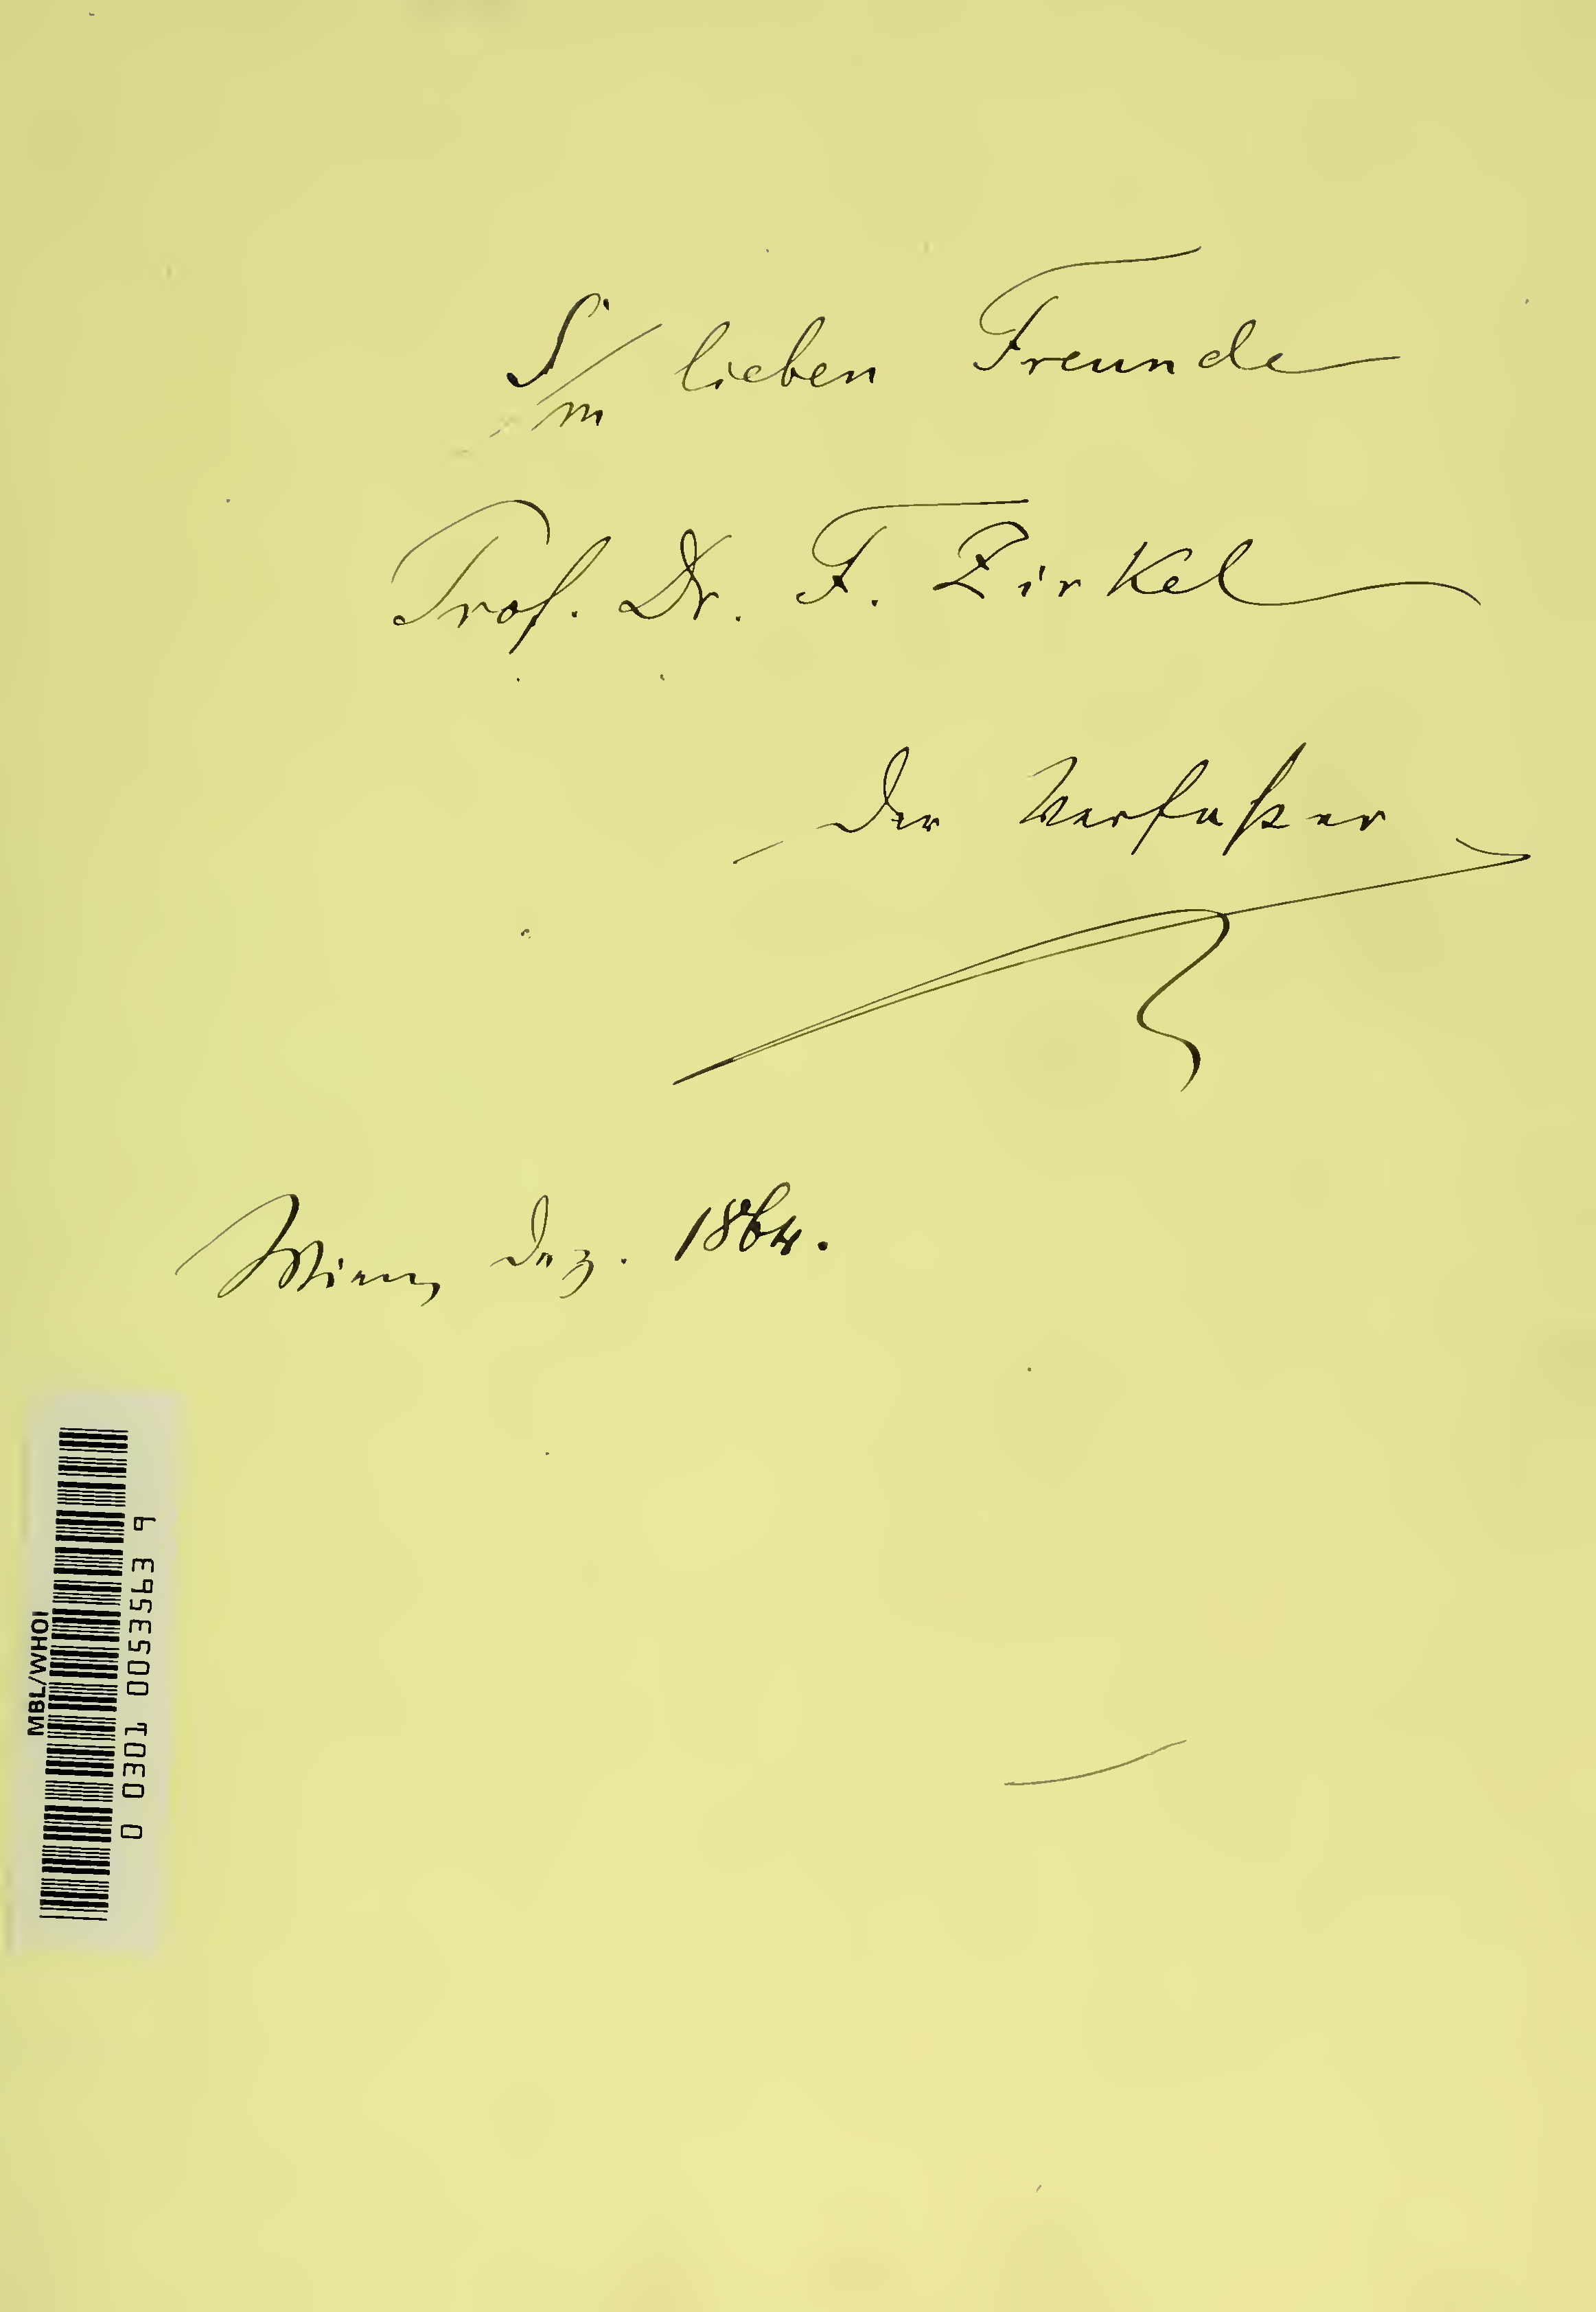 S/m lieben Freunde
Prof. Dr. F. Zirkel
Der Verfaßer
Wien, Dez. 1864.
MBL/WHOI
0 0301 0053563 9